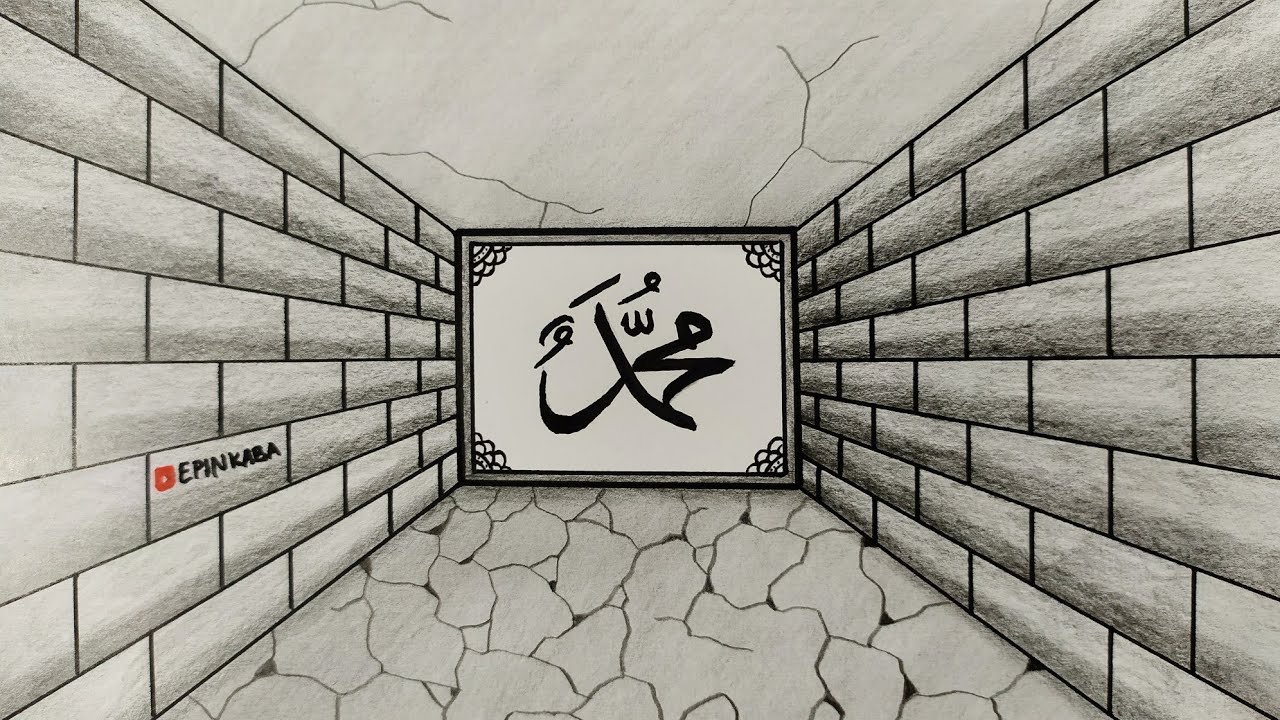 مُحَمَّدٌ
EPINKABA